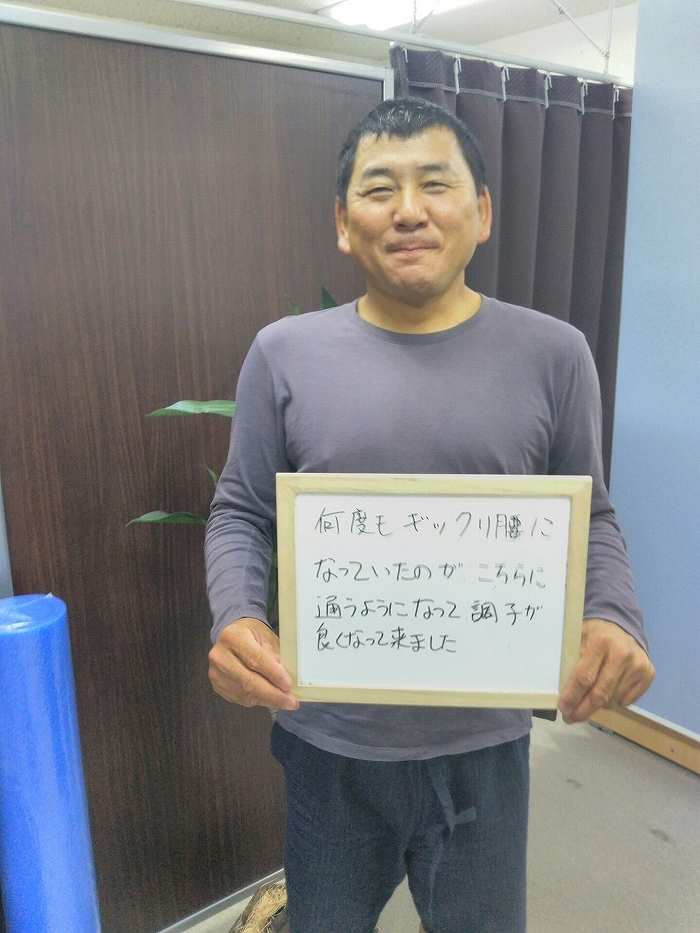 何度もギックリ腰に
なっていたのが こちらに
通うようになって 調子が
良くなって来ました